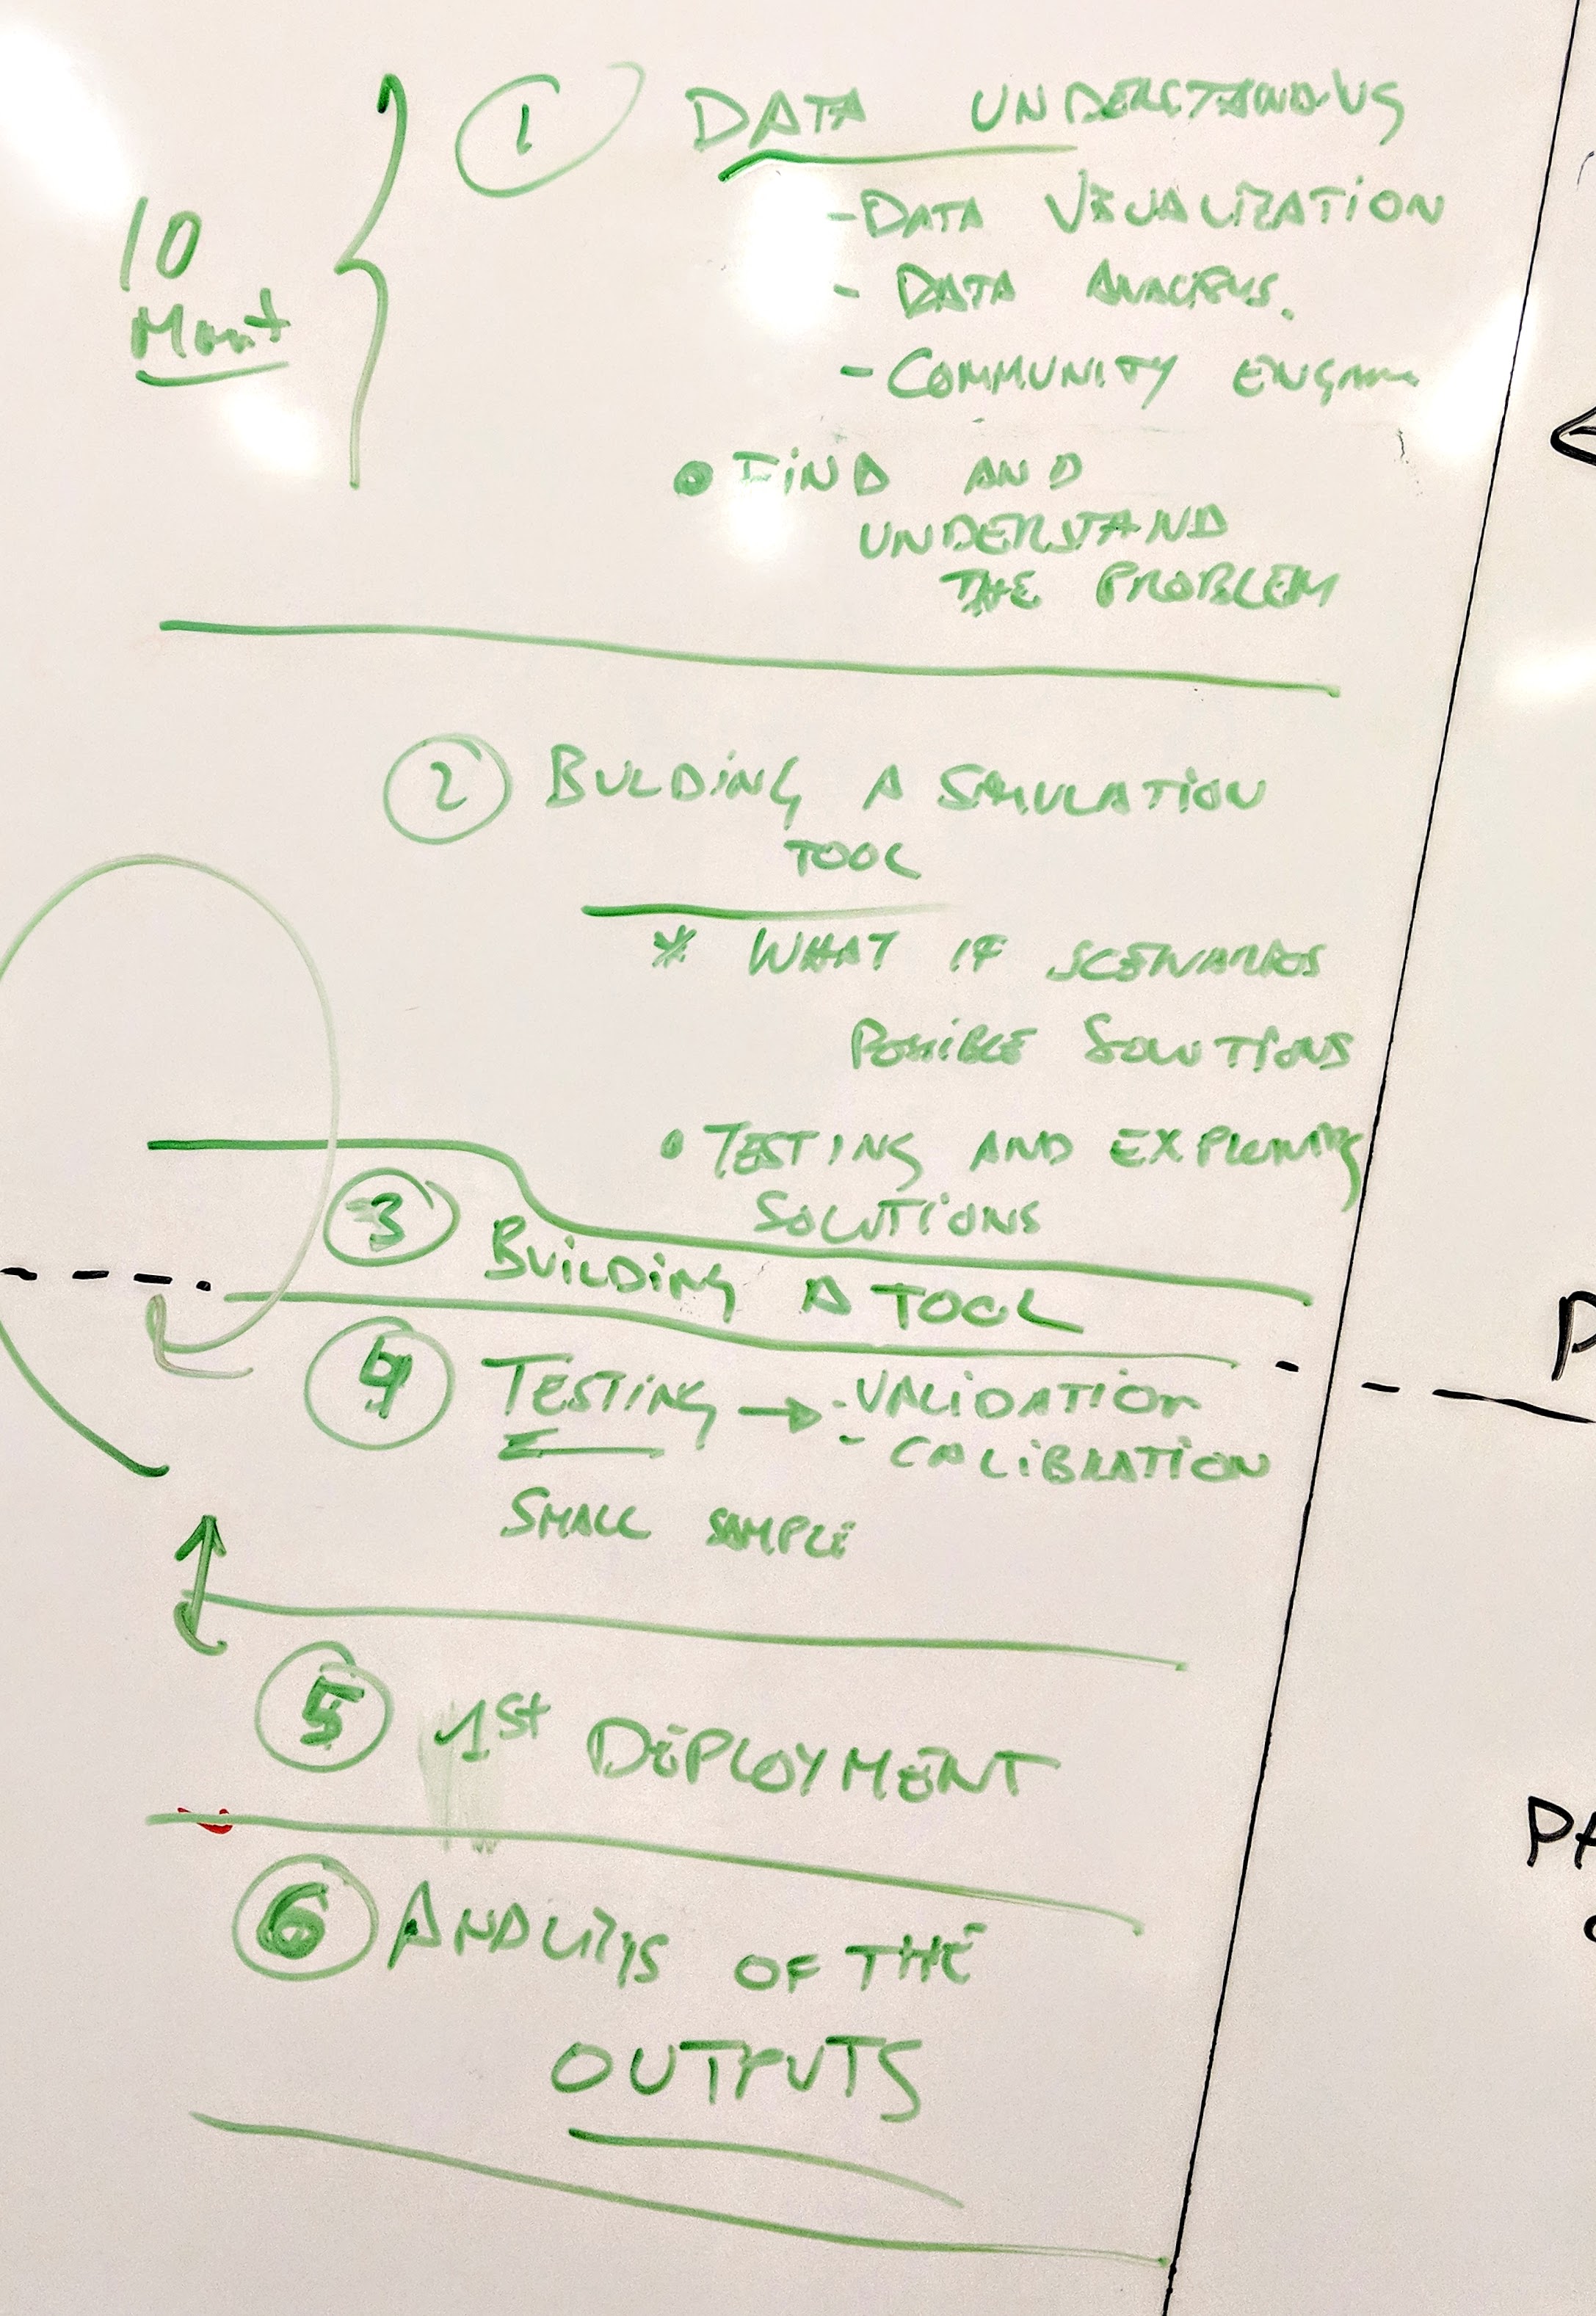 1 DATA UNDERSTANDING
- DATA VISUALIZATION
10
- DATA ANALYSIS.
Mont
- COMMUNITY
• FIND AND
UNDERSTAND
THE PROBLEM
2 BULDING A SIMULATION
TOOL
* WHAT IF SCENARIOS
POSSIBLE SOLUTIONS
• TESTING AND EXPLORING
SOLUTIONS
3 BUILDING A TOOL
4 TESTING → - VALIDATION
- CALIBRATION
SMALL SAMPLE
5 1st DEPLOYMENT
6 ANALIZYS OF THE
OUTPUTS
P
PA